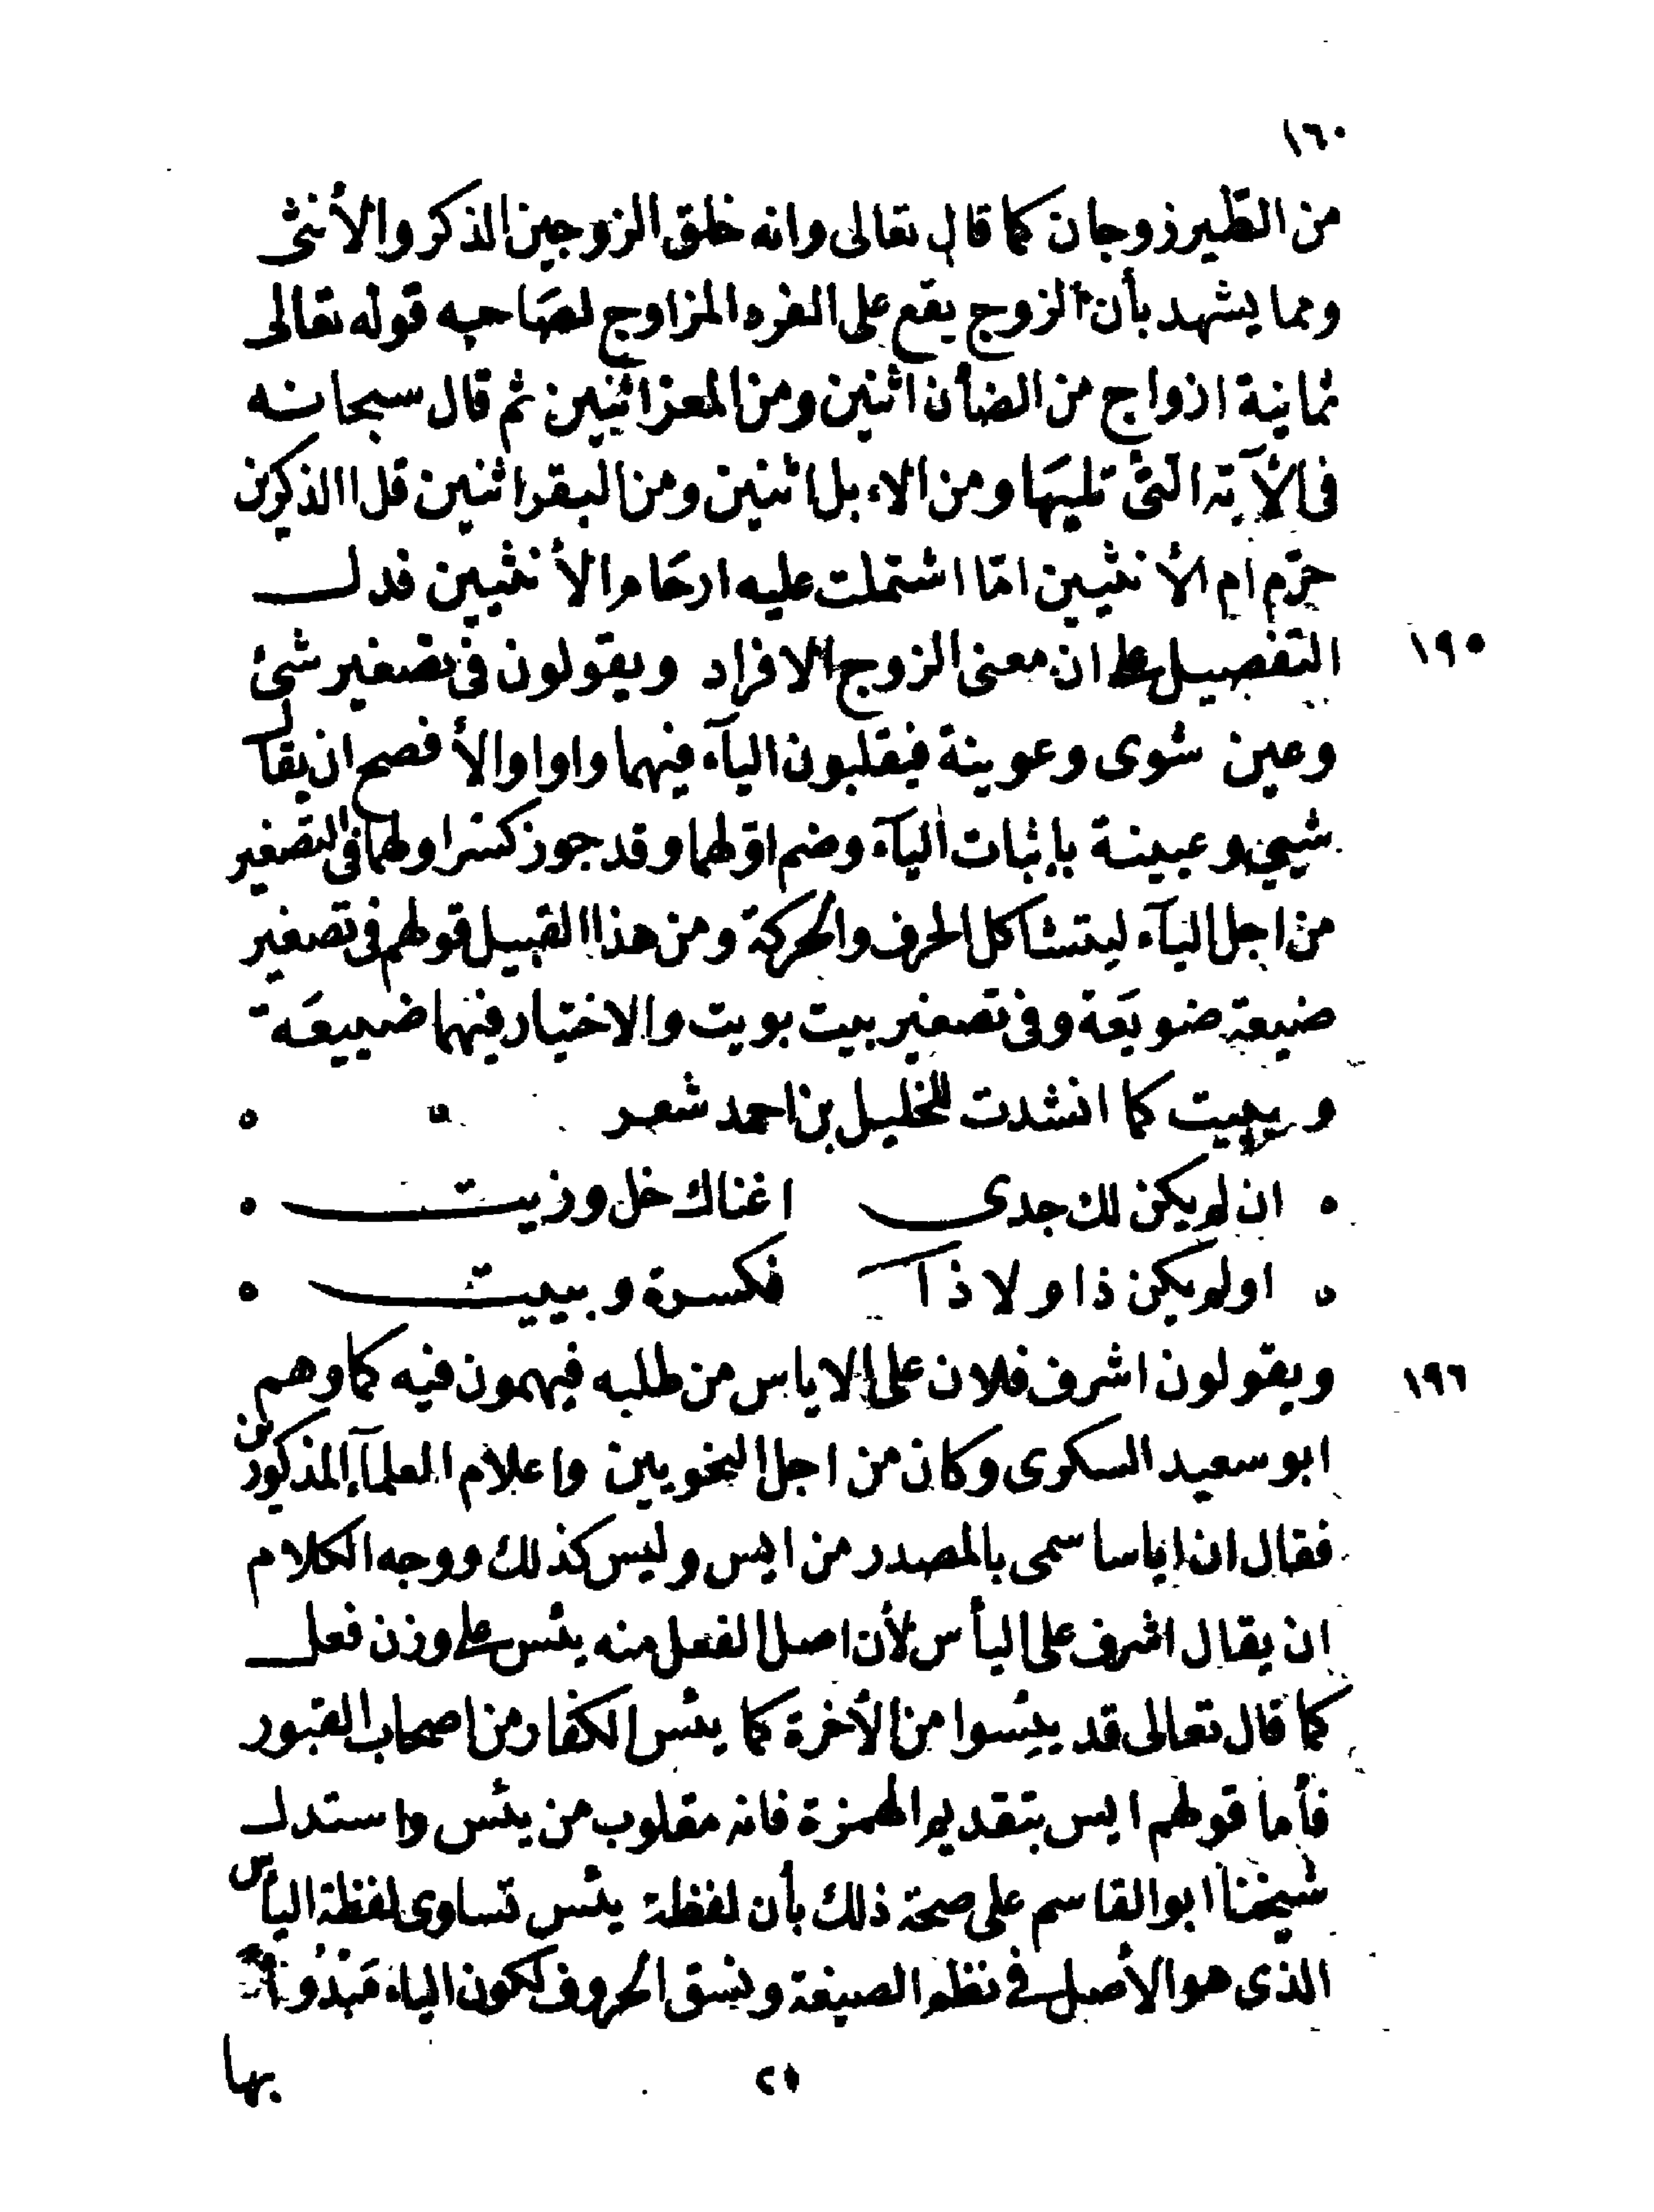 ١٦٠
من الطير زوجان كما قال تعالى وانه خلق الزوجين الذكر والأنثى
ومما يشهد بأن الزوج يقع على الفرد المزاوج لصاحبه قوله تعالى
ثمانية ازواج من الضأن اثنين ومن المعز اثنين ثم قال سبحانه
فى الآية التى تليها ومن الاءبل اثنين ومن البقر اثنين قل االذكرين
حرّم ام الأنثيين امّا اشتملت عليه ارحام الأنثيين فدل
١٩٥ التفصيل على ان معنى الزوج الافراد ويقولون فى تصغير شئ
وعين شوى وعوينة فيقلبون اليآء فيهما واوا والأفصح ان يقال
شيئ وعيينة بإثبات اليآء وضم اوّلهما وقد جوز كسر اولهما فى التصغير
من اجل اليآء ليتشاكل الحرف والحركة ومن هذا القبيل قولهم فى تصغير
ضيعة ضويعَة وفى تصغير بيت بويت والاختيار فيهما ضييعَة
وبييت كما انشدت للخليل بن احمد شعر
ان لم يكن لك جدى اغناك خل وزيت
اولم يكن ذا ولا ذاك فكسرة وبييت
١٩٦ ويقولون اشرف فلان على الاياس من طلبه فيهمون فيه كما وهم
ابو سعيد السكرى وكان من اجل النحويين واعلام العلمآء المذكورين
فقال ان اياسا سمى بالمصدر من ايس وليس كذلك ووجه الكلام
ان يقال اشرف على اليأس لأن اصل الفعل منه يئس على وزن فعل
كما قال تعالى قد يئسوا من الأخرة كما يئس الكفار من اصحاب القبور
فأما قولهم ايس بتقديم الهمزة فانه مقلوب من يئس واستدل
شيخنا ابو القاسم على صحة ذلك بأن لفظة يئس تساوى لفظة اليأس
الذى هو الأصل فى نظم الصيغة ونسق الحروف لكون الياء مَبْدُوأً
بها